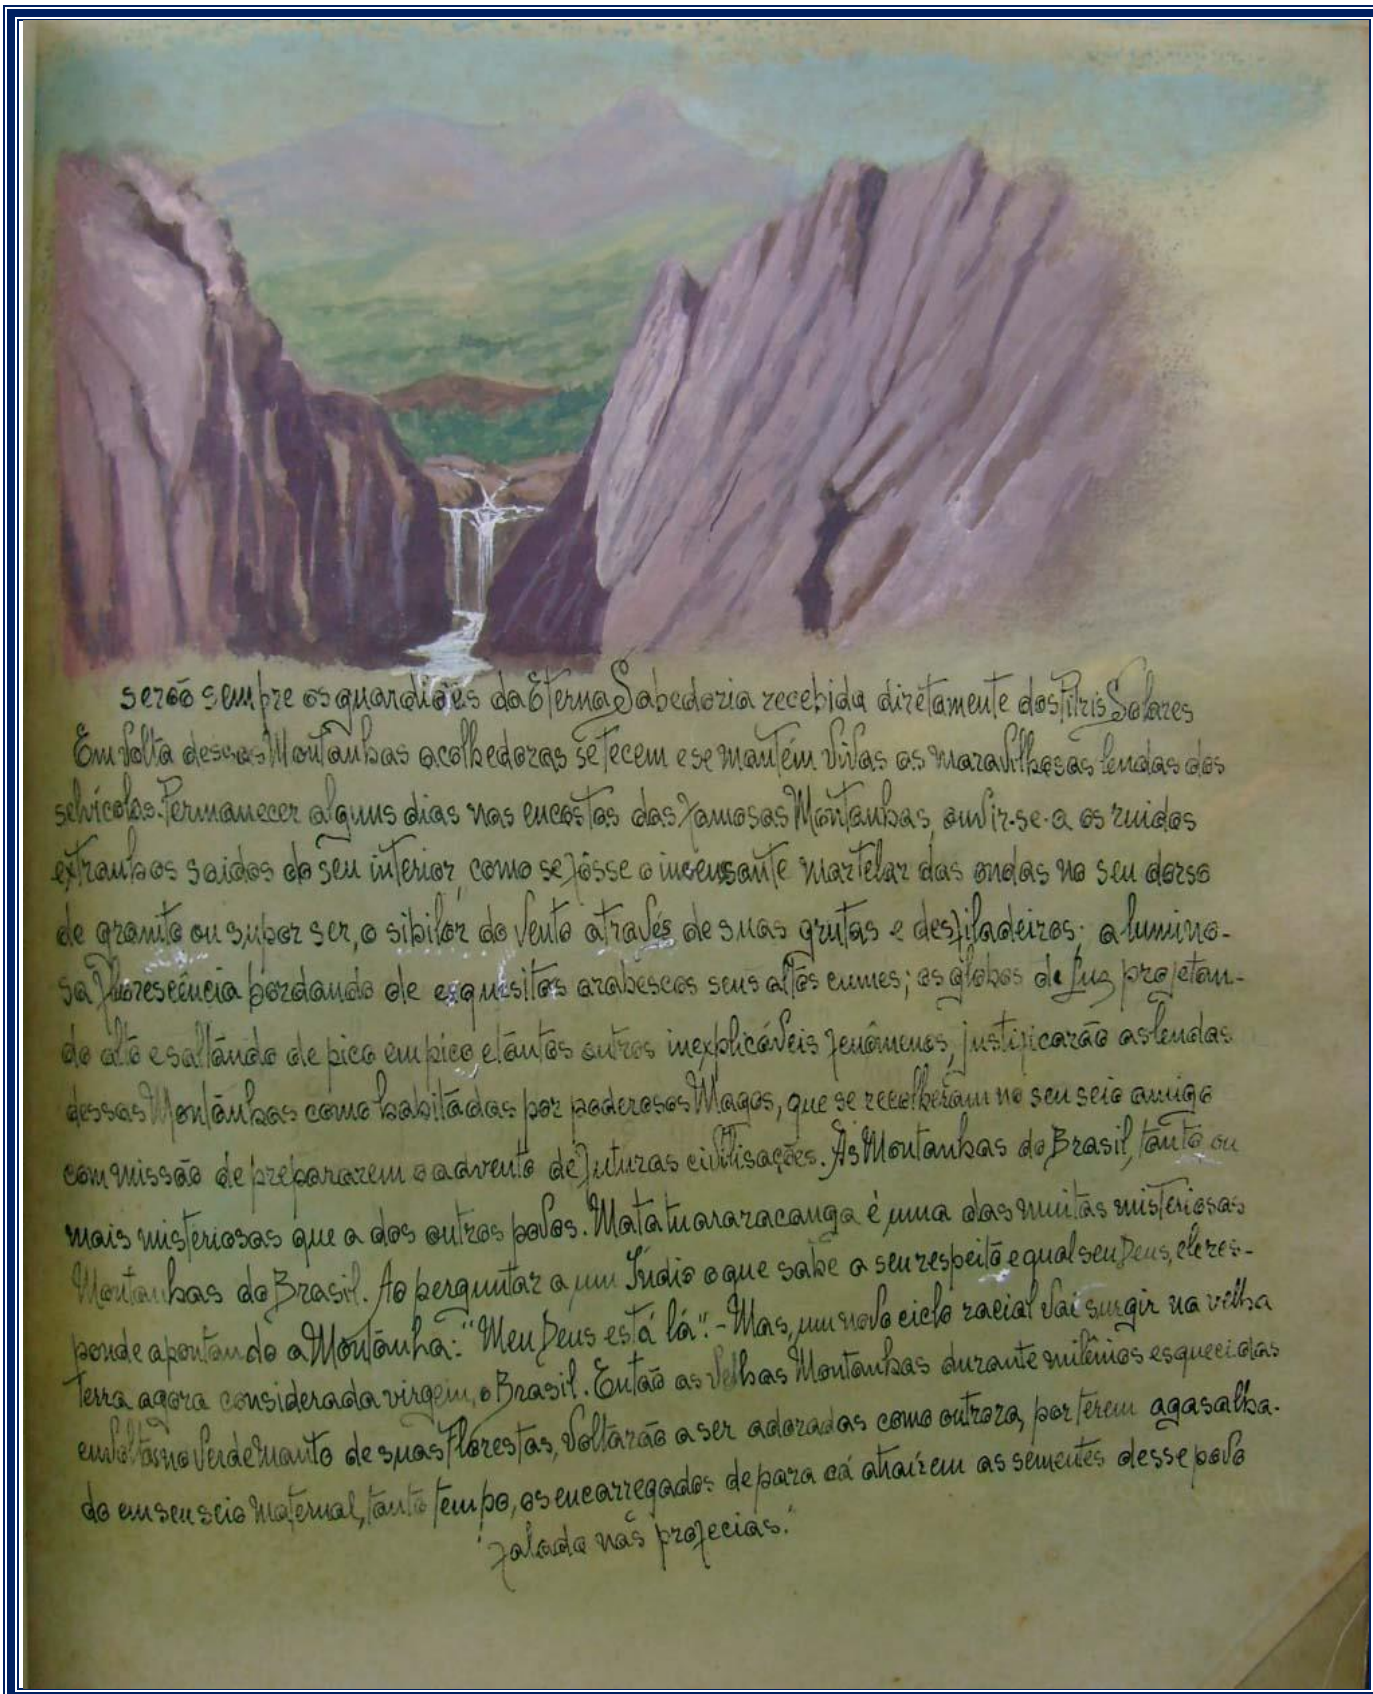 serão sempre os guardiães da Eterna Sabedoria recebida diretamente dos Pitris Solares
Em volta dessas Montanhas acolhedoras se tecem e se mantém vivas as maravilhosas lendas dos
selvícolas. Permanecer alguns dias nas encostas das famosas Montanhas, ouvir-se-a os ruidos
extranhos saidos do seu interior, como se fôsse o incensante martelar das ondas no seu dorso
de granito ou supor ser, o sibilar do vento através de suas grutas e desfiladeiros; a lumino-
sa fluorescência bordando de exquisitos arabescos seus altos cumes; os globos de Luz projetan-
do alto e saltando de pico em pico e tantos outros inexplicáveis fenômenos, justificarão as lendas
dessas Montanhas como habitadas por poderosos Magos, que se recolheram no seu seio amigo
com missão de prepararem o advento de futuras civilisações. As Montanhas do Brasil, tanto ou
mais misteriosas que a dos outros povos. Matatuararacanga é uma das muitas misteriosas
Montanhas do Brasil. Ao perguntar a um Índio o que sabe a seu respeito e qual seu Deus, ele res-
ponde apontando a Montanha: "Meu Deus está lá". - Mas, um novo ciclo racial vai surgir na velha
Terra agora considerada virgem, o Brasil. Então as velhas Montanhas durante milênios esquecidas
envoltas no verde manto de suas Florestas, voltarão a ser adoradas como outrora, por terem agasalha-
do em seu seio maternal, tanto tempo, os encarregados de para cá atraírem as sementes desse povo
falado nas profecias."